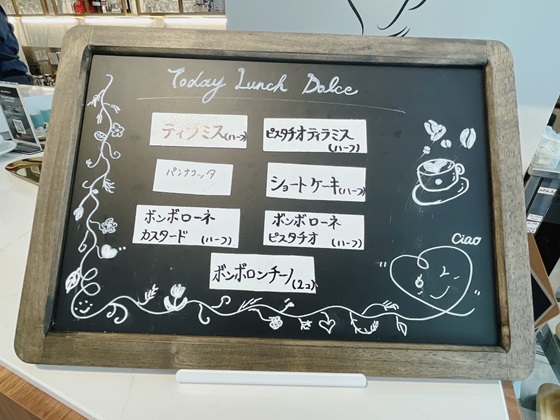 Today Lunch Dolce
ティラミス(ハーフ)
ピスタチオティラミス
(ハーフ)
パンナコッタ
ショートケーキ(ハーフ)
ボンボローネ
カスタード (ハーフ)
ボンボローネ
ピスタチオ (ハーフ)
ボンボロンチーノ(2コ)
Ciao